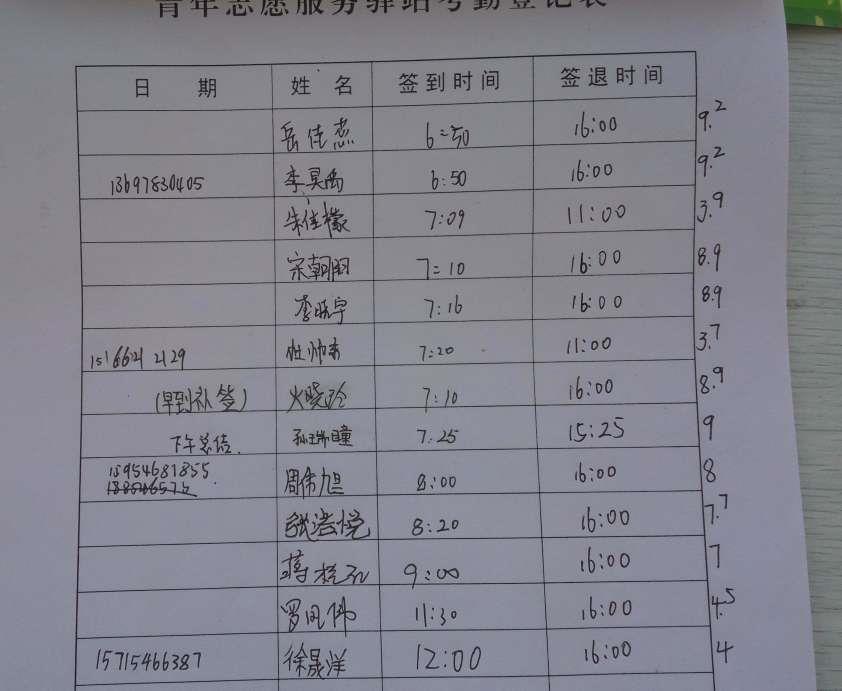 青年志愿服务驿站考勤登记表
日 期 姓 名 签到时间 签退时间
岳佳 6:50 16:00 9.2
13697830405 李昊禹 6:50 16:00 9.2
朱佳檬 7:09 11:00 3.9
宋朝明 7:10 16:00 8.9
李晓宇 7:16 16:00 8.9
杜帅 7:20 11:00 3.7
(早到补签) 火晓玲 7:10 16:00 8.9
下午总结. 孙瑞瞳 7:25 15:25 9
15954681855 周伟旭 8:00 16:00 8
张浩悦 8:20 16:00 7.7
蒋 9:00 16:00 7
罗凤伟 11:30 16:00 4.5
15715466387 徐晟洋 12:00 16:00 4